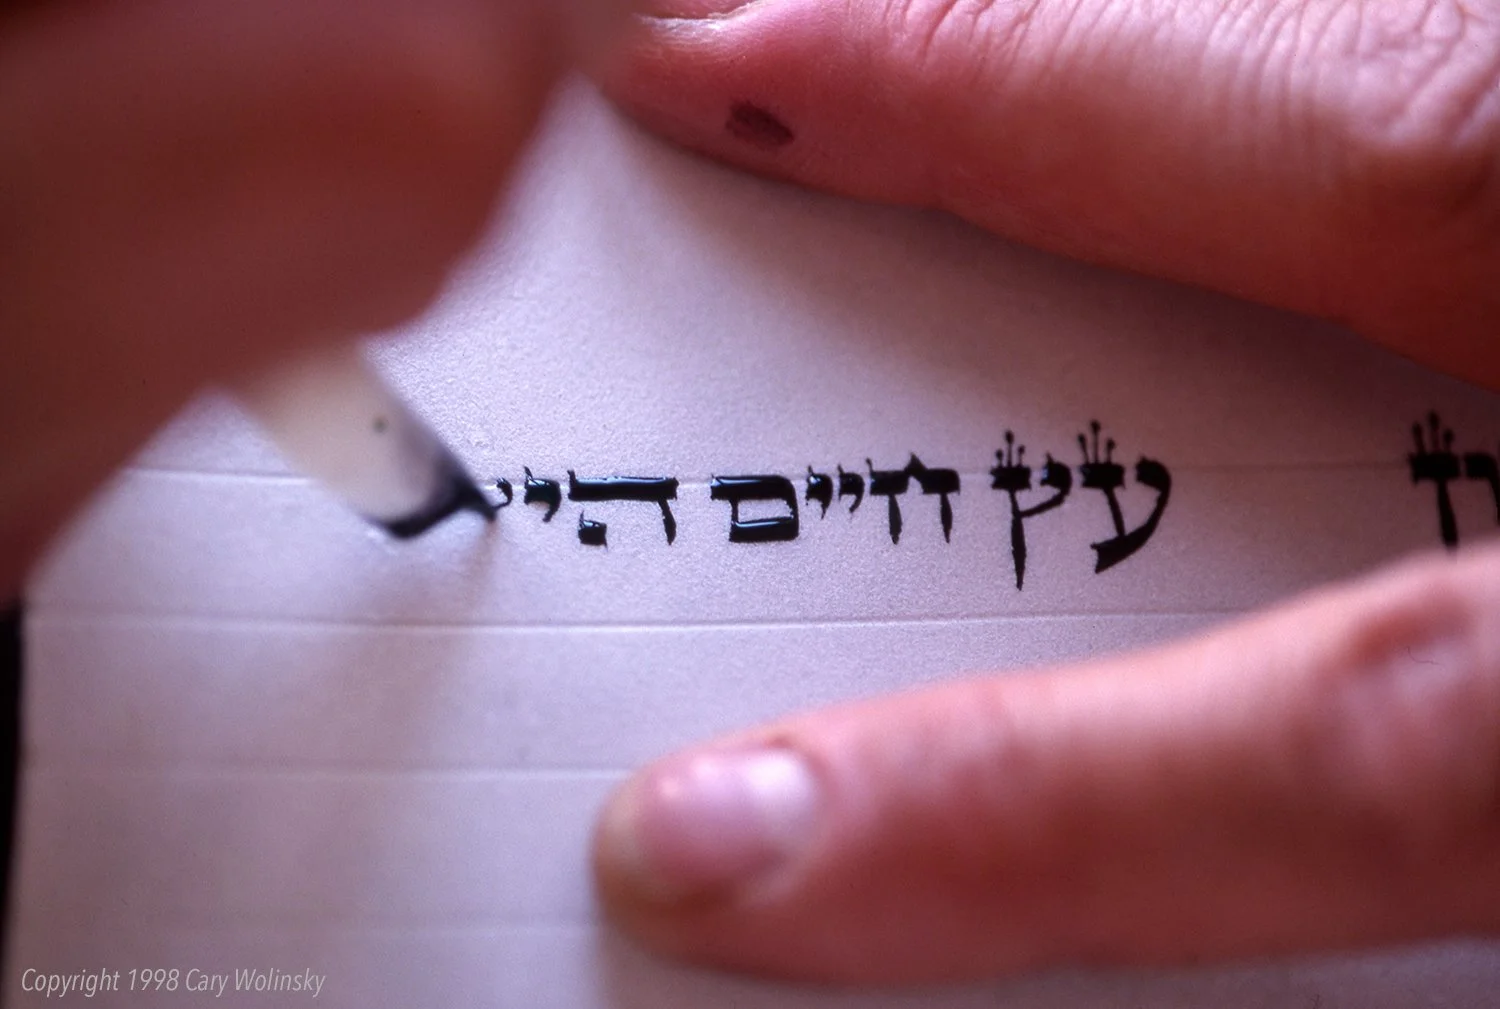 עץ חיים הי
Copyright 1998 Cary Wolinsky